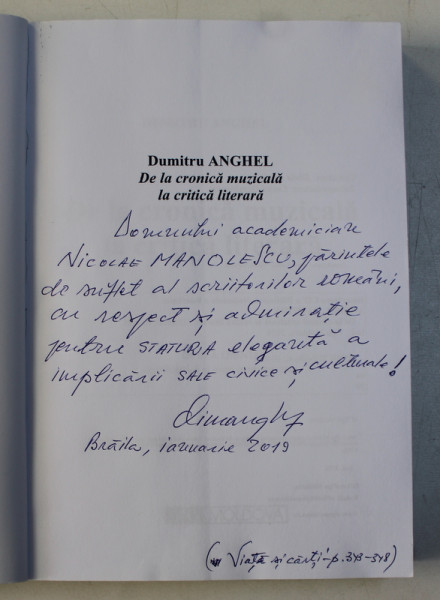 Dumitru ANGHEL
De la cronică muzicală
la critică literară
Domnului academician
NICOLAE MANOLESCU, părintele
de suflet al scriitorilor români,
cu respect și admirație
pentru STATURA elegantă a
implicării SALE civice și culturale!
Brăila, ianuarie 2019
Viață și cărți - p. 343-348)